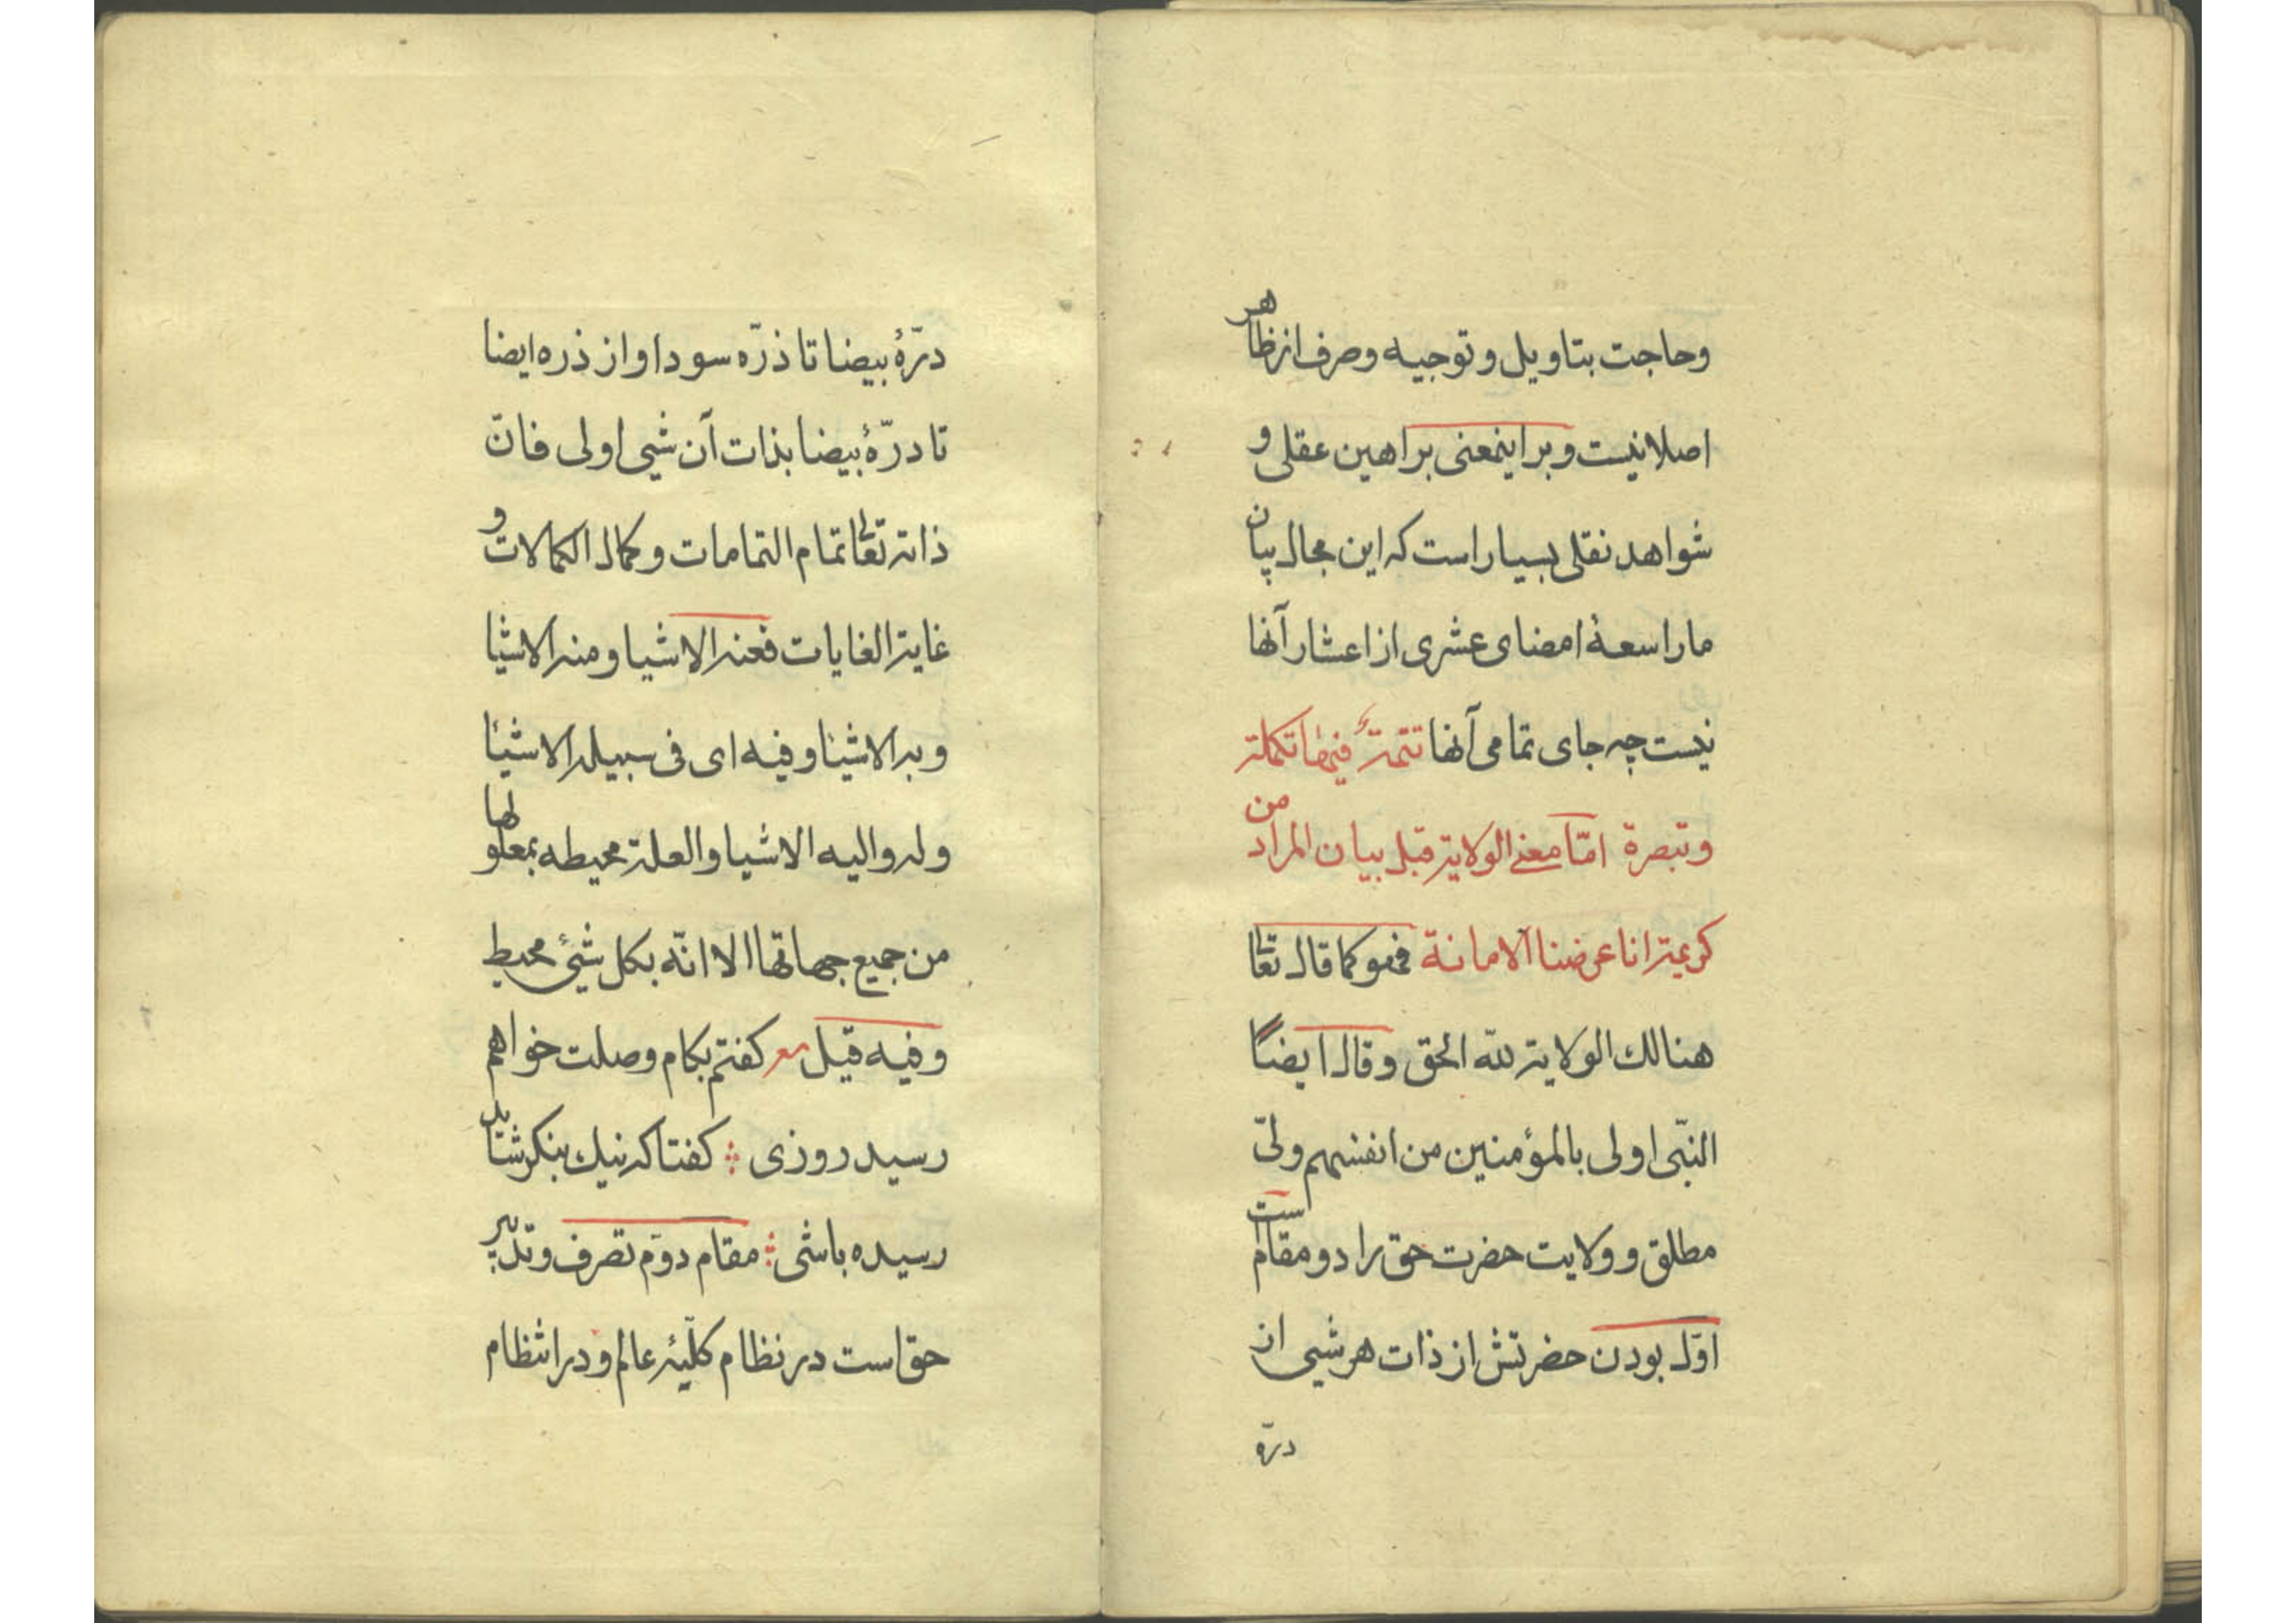 وحاجت بتاويل و توجيه و صرف از ظاهر
اصلا نيست و بر اينمعنى براهين عقلى و
شواهد نقلى بسيار است كه اين مجال بيان
ما را سعهٔ امضاى عشرى از اعشار آنها
نيست چه جاى تمامى آنها تتمة فيها تكملة
وتبصرة امّا معنى الولاية قبل بيان المراد من
كريمة انا عرضنا الامانة فهو كما قال تعالى
هنالك الولاية للّه الحق وقال ايضاً
النبّى اولى بالمؤمنين من انفسهم ولىّ
مطلق و ولايت حضرت حق را دو مقام است
اوّل بودن حضرتش از ذات هر شيى از
درّه
درّهٔ بيضا تا ذرّه سودا و از ذره ايضا
تا درّهٔ بيضا بذات آن شيى اولى فانّ
ذاته تعالى تمام التمامات و كمال الكمالات و
غاية الغايات فعنه الاشيا و منه الاشيا
و به الاشيا و فيه اى فى سبيله الاشيا
و له و اليه الاشيا والعلة محيطه بمعلولها
من جميع جهاتها الا انّه بكل شئ محيط
و فيه قيل مع كفتم بكام وصلت خواهم
رسيد روزى كفتا كه نيك بنكر شايد
رسيده باشى مقام دوّم تصرف و تدبير
حق است در نظام كلّيهٔ عالم و در انتظام